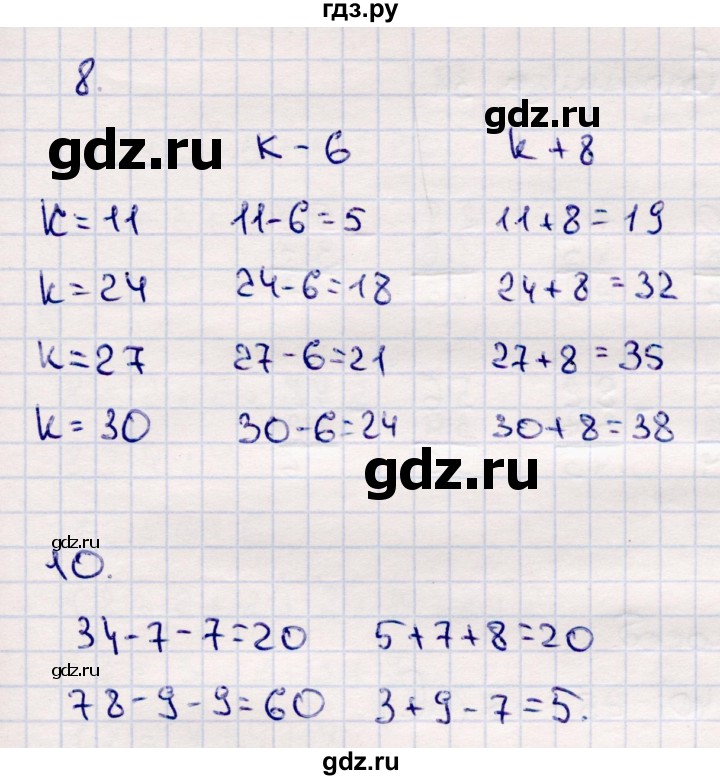 гдз.ру
8.
gdz.ru
gdz.ru
k - 6 k + 8
k = 11 11 - 6 = 5 11 + 8 = 19
k = 24 24 - 6 = 18 24 + 8 = 32
k = 27 27 - 6 = 21 27 + 8 = 35
k = 30 30 - 6 = 24 30 + 8 = 38
gdz.ru
gdz.ru
10.
34 - 7 - 7 = 20 5 + 7 + 8 = 20
gdz.ru
78 - 9 - 9 = 60 3 + 9 - 7 = 5.
gdz.ru